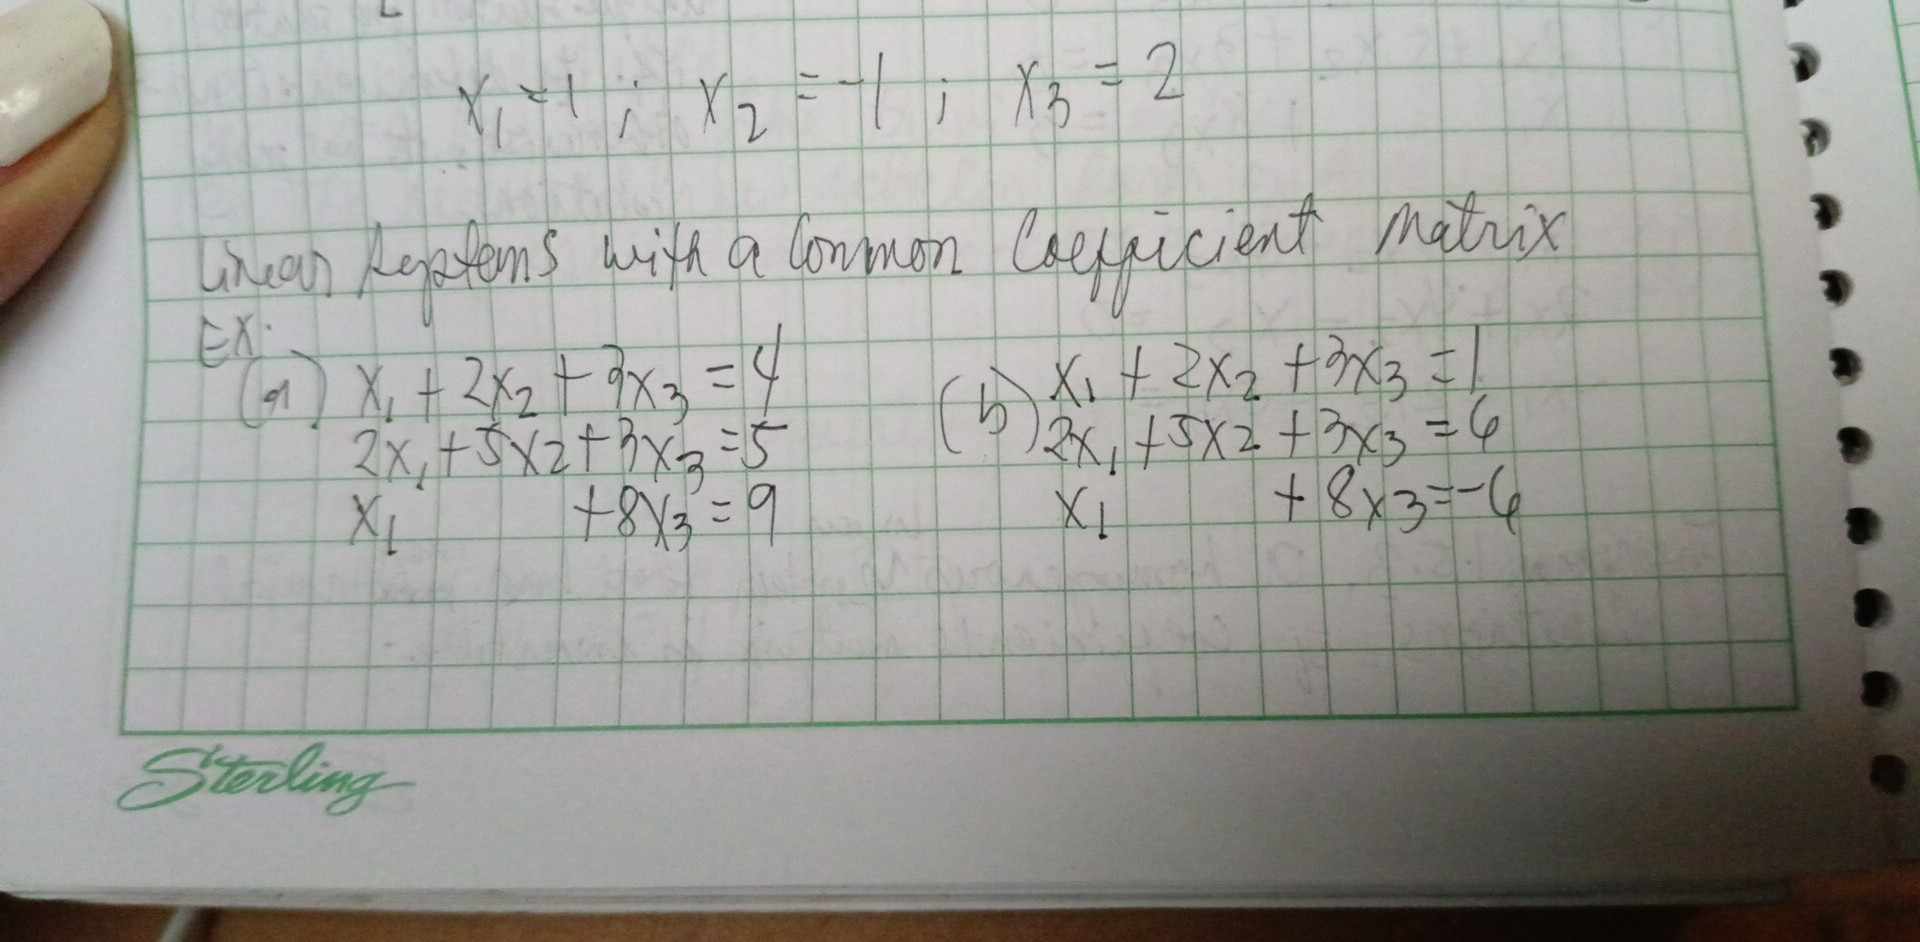 x₁=1 ; x₂ = -1 ; x₃ = 2
Linear Systems with a Common Coefficient Matrix
Ex:
(a) x₁ + 2x₂ + 3x₃ = 4
2x₁ + 5x₂ + 3x₃ = 5
x₁ + 8x₃ = 9
(b) x₁ + 2x₂ + 3x₃ = 1
2x₁ + 5x₂ + 3x₃ = 6
x₁ + 8x₃ = -6
Sterling